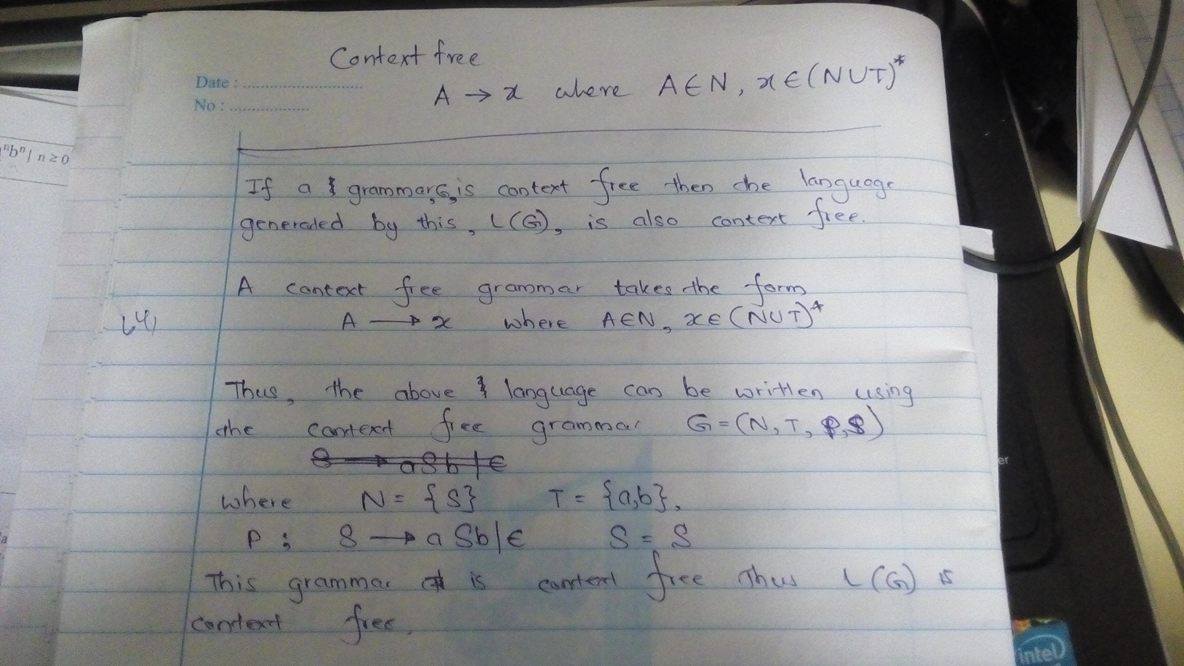 Context free
Date :
A → x where A∈N, x∈(N∪T)*
No :
ⁿbⁿ| n≥0
If a grammar,G,is context free then the language
generated by this, L(G), is also context free.
A context free grammar takes the form
A → x where A∈N, x∈(N∪T)*
Thus, the above language can be written using
the context free grammar G=(N,T,P,S)
S → aSb|∈
where N= {S} T= {a,b},
P: S → aSb|∈ S = S
This grammar is context free Thus L(G) is
context free.
intel